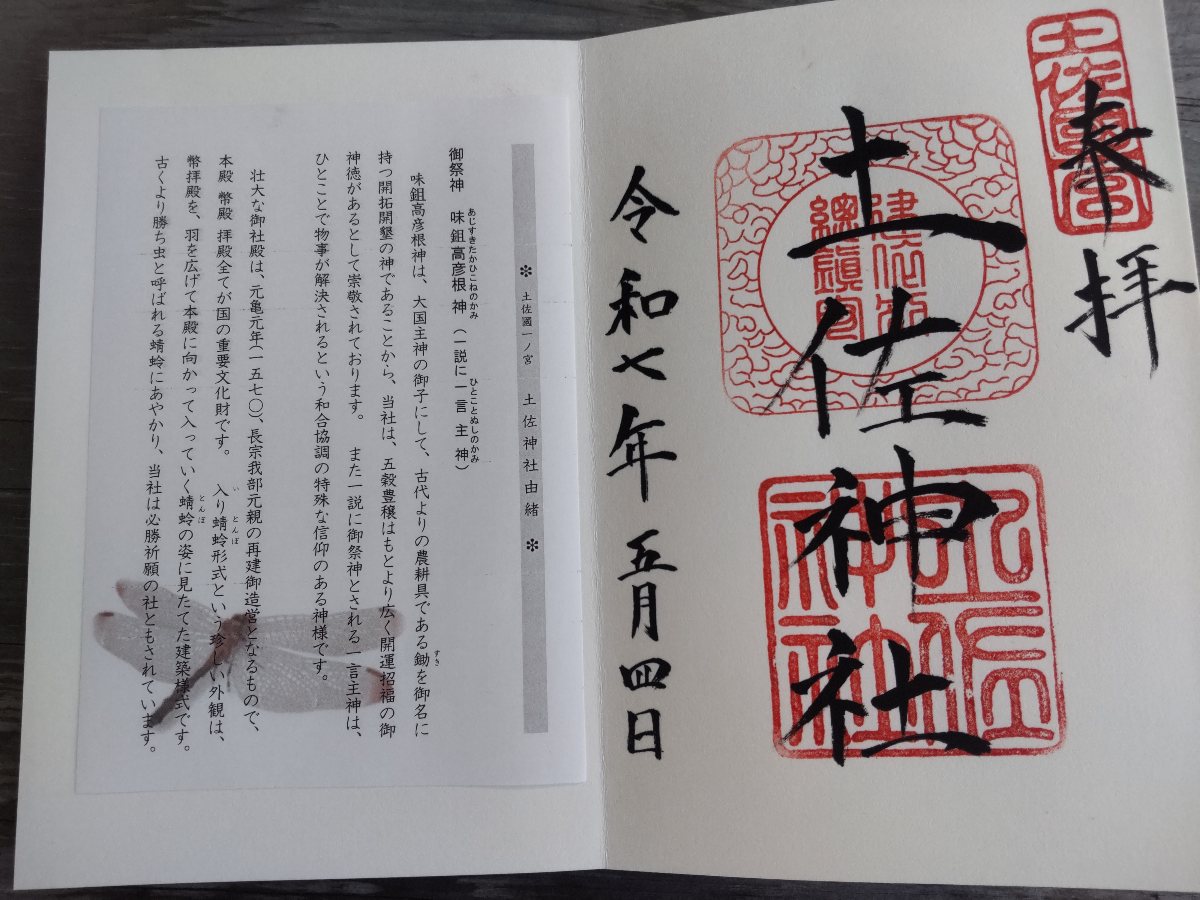 奉拝
土佐神社
令和七年五月四日
土佐神社
❇ 土佐國一ノ宮 土佐神社由緒 ❇
御祭神 味鉏高彦根神(一説に一言主神)
あじすきたかひこねのかみ
ひとことぬしのかみ
味鉏高彦根神は、大国主神の御子にして、古代よりの農耕具である鋤を御名に
すき
持つ開拓開墾の神であることから、当社は、五穀豊穣はもとより広く開運招福の御
神徳があるとして崇敬されております。 また一説に御祭神とされる一言主神は、
ひとことで物事が解決されるという和合協調の特殊な信仰のある神様です。
壮大な御社殿は、元亀元年(一五七〇)、長宗我部元親の再建御造営となるもので、
本殿 幣殿 拝殿全てが国の重要文化財です。 入り蜻蛉形式という珍しい外観は、
い とんぼ
幣拝殿を、羽を広げて本殿に向かって入っていく蜻蛉の姿に見たてた建築様式です。
とんぼ
古くより勝ち虫と呼ばれる蜻蛉にあやかり、当社は必勝祈願の社ともされています。